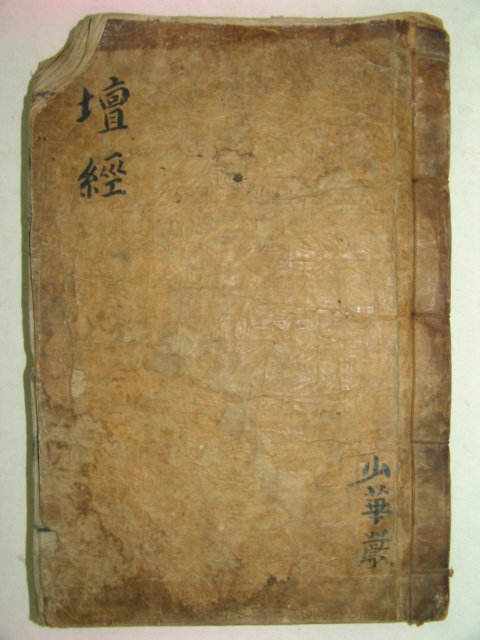 壇經
山華